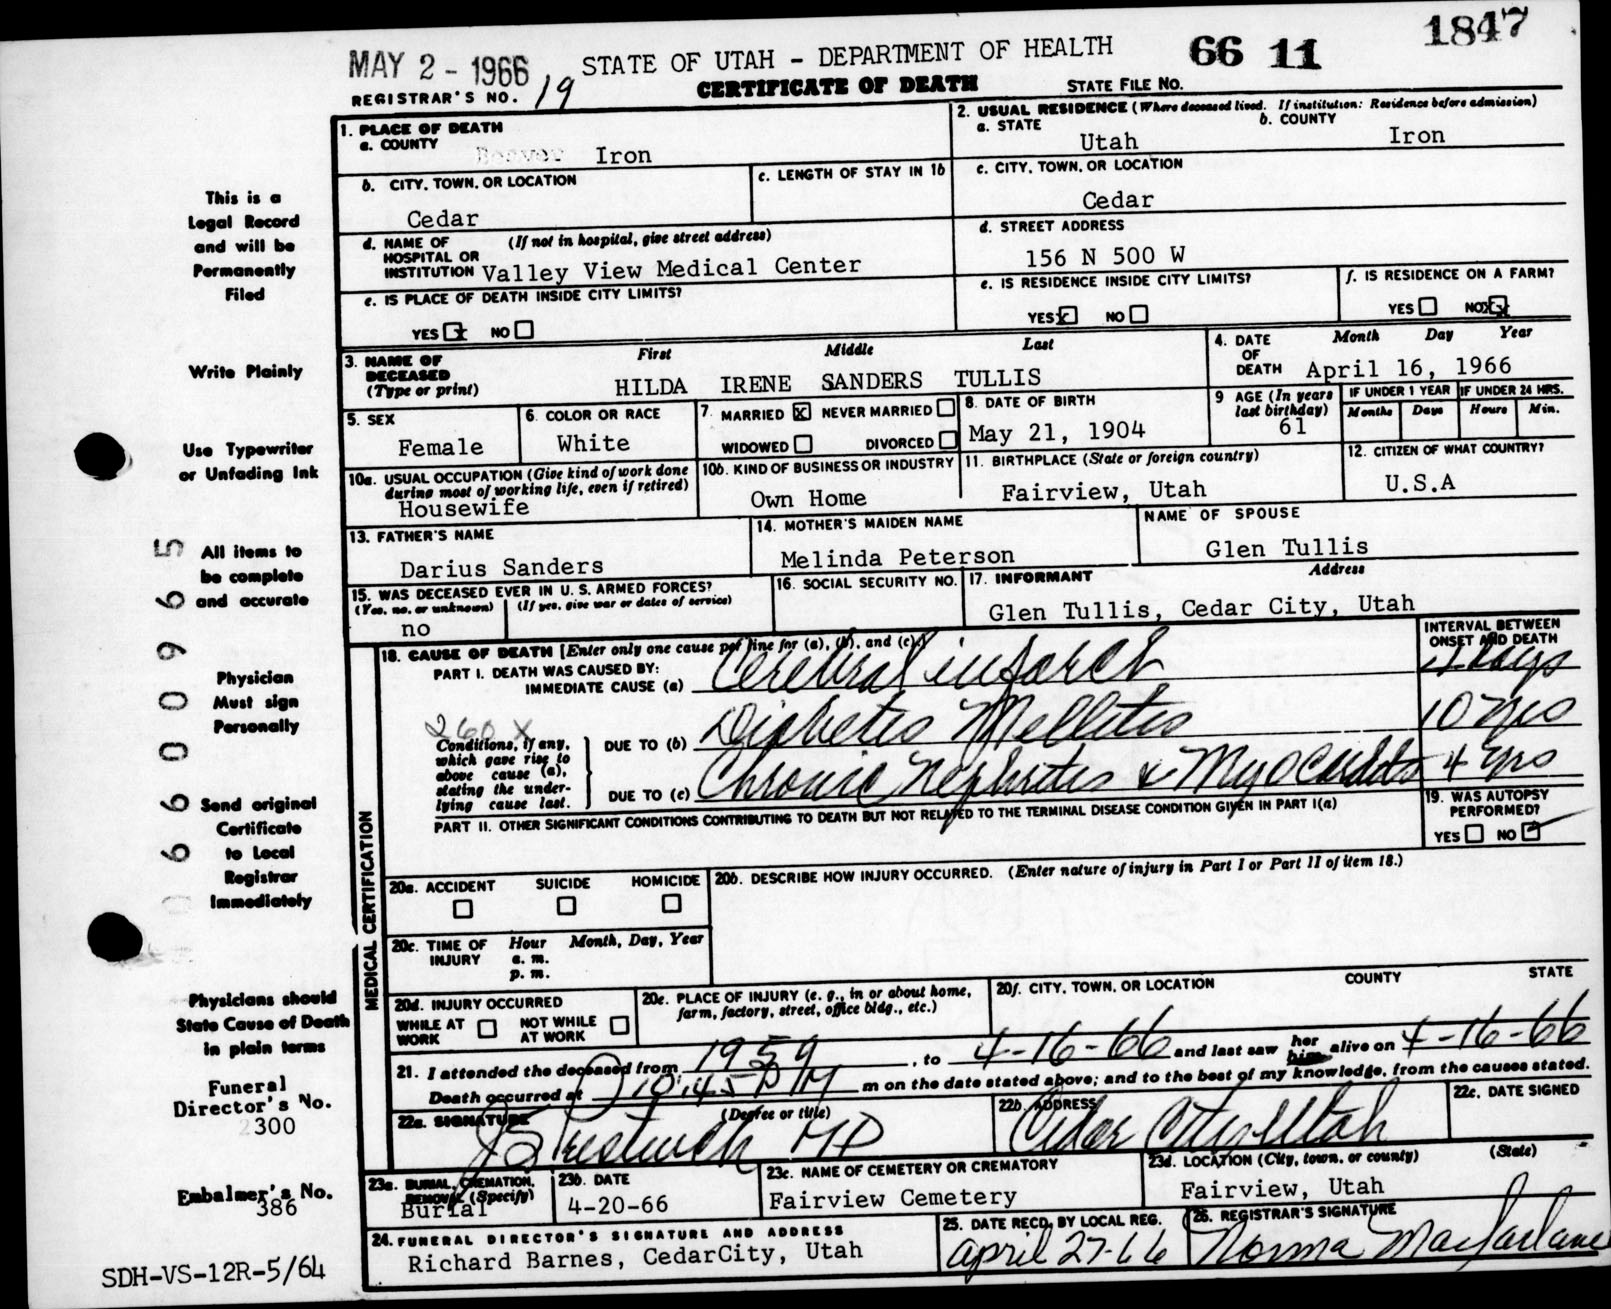 MAY 2 - 1966 STATE OF UTAH - DEPARTMENT OF HEALTH 66 11 1847
REGISTRAR'S NO. 19 CERTIFICATE OF DEATH STATE FILE NO.
1. PLACE OF DEATH
a. COUNTY
Beaver Iron
2. USUAL RESIDENCE (Where deceased lived. If institution: Residence before admission)
a. STATE b. COUNTY
Utah Iron
b. CITY, TOWN, OR LOCATION
Cedar
c. LENGTH OF STAY IN 1b
c. CITY, TOWN, OR LOCATION
Cedar
d. NAME OF HOSPITAL OR INSTITUTION (If not in hospital, give street address)
Valley View Medical Center
d. STREET ADDRESS
156 N 500 W
e. IS PLACE OF DEATH INSIDE CITY LIMITS?
YES x NO
e. IS RESIDENCE INSIDE CITY LIMITS?
YES x NO
f. IS RESIDENCE ON A FARM?
YES NO x
3. NAME OF DECEASED (Type or print) First Middle Last
HILDA IRENE SANDERS TULLIS
4. DATE OF DEATH Month Day Year
April 16, 1966
5. SEX
Female
6. COLOR OR RACE
White
7. MARRIED x NEVER MARRIED
WIDOWED DIVORCED
8. DATE OF BIRTH
May 21, 1904
9 AGE (In years last birthday)
61
IF UNDER 1 YEAR IF UNDER 24 HRS.
Months Days Hours Min.
10a. USUAL OCCUPATION (Give kind of work done during most of working life, even if retired)
Housewife
10b. KIND OF BUSINESS OR INDUSTRY
Own Home
11. BIRTHPLACE (State or foreign country)
Fairview, Utah
12. CITIZEN OF WHAT COUNTRY?
U.S.A
13. FATHER'S NAME
Darius Sanders
14. MOTHER'S MAIDEN NAME
Melinda Peterson
NAME OF SPOUSE
Glen Tullis
15. WAS DECEASED EVER IN U. S. ARMED FORCES?
(Yes, no, or unknown) (If yes, give war or dates of service)
no
16. SOCIAL SECURITY NO.
17. INFORMANT Address
Glen Tullis, Cedar City, Utah
MEDICAL CERTIFICATION
18. CAUSE OF DEATH [Enter only one cause per line for (a), (b), and (c).]
INTERVAL BETWEEN ONSET AND DEATH
PART I. DEATH WAS CAUSED BY:
IMMEDIATE CAUSE (a) Cerebral infarct days
260 X
Conditions, if any, which gave rise to above cause (a), stating the underlying cause last.
DUE TO (b) Diabetes Mellitus 10 yrs
DUE TO (c) Chronic Nephritis & Myocarditis 4 yrs
PART II. OTHER SIGNIFICANT CONDITIONS CONTRIBUTING TO DEATH BUT NOT RELATED TO THE TERMINAL DISEASE CONDITION GIVEN IN PART I(a)
19. WAS AUTOPSY PERFORMED?
YES NO
20a. ACCIDENT SUICIDE HOMICIDE
20b. DESCRIBE HOW INJURY OCCURRED. (Enter nature of injury in Part I or Part II of item 18.)
20c. TIME OF INJURY Hour Month, Day, Year
a. m.
p. m.
20d. INJURY OCCURRED
WHILE AT WORK NOT WHILE AT WORK
20e. PLACE OF INJURY (e. g., in or about home, farm, factory, street, office bldg., etc.)
20f. CITY, TOWN, OR LOCATION COUNTY STATE
21. I attended the deceased from 1959, to 4-16-66 and last saw her him alive on 4-16-66
Death occurred at 10:45 P M m on the date stated above; and to the best of my knowledge, from the causes stated.
22a. SIGNATURE (Degree or title)
JS Prestwich MD
22b. ADDRESS
Cedar City Utah
22c. DATE SIGNED
23a. BURIAL, CREMATION, REMOVAL (Specify)
Burial
23b. DATE
4-20-66
23c. NAME OF CEMETERY OR CREMATORY
Fairview Cemetery
23d. LOCATION (City, town, or county) (State)
Fairview, Utah
24. FUNERAL DIRECTOR'S SIGNATURE AND ADDRESS
Richard Barnes, CedarCity, Utah
25. DATE RECD. BY LOCAL REG.
April 27-66
26. REGISTRAR'S SIGNATURE
Norma Macfarlane
This is a
Legal Record
and will be
Permanently
Filed
Write Plainly
Use Typewriter
or Unfading Ink
All items to
be complete
and accurate
Physician
Must sign
Personally
Send original
Certificate
to Local
Registrar
Immediately
Physicians should
State Cause of Death
in plain terms
Funeral
Director's No.
2300
Embalmer's No.
386
SDH-VS-12R-5/64
0660600965